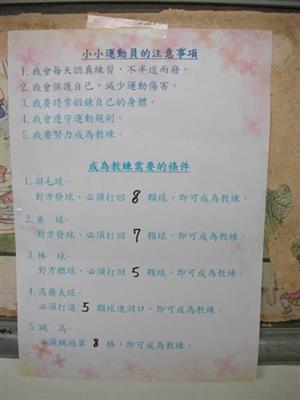 小小運動員的注意事項
1.我會每天認真練習，不半途而廢。
2.我會保護自己，減少運動傷害。
3.我要時常鍛鍊自己的身體。
4.我會遵守運動規則。
5.我要努力成為教練。
成為教練需要的條件
1.羽毛球-
對方發球，必須打回 8 顆球，即可成為教練。
2.桌 球-
對方發球，必須打回 7 顆球，即可成為教練。
3.棒 球-
對方餵球，必須打回 5 顆球，即可成為教練。
4.高爾夫球-
必須打進 5 顆球進洞口，即可成為教練。
5.跳 高-
必須跳過第 8 格，即可成為教練。